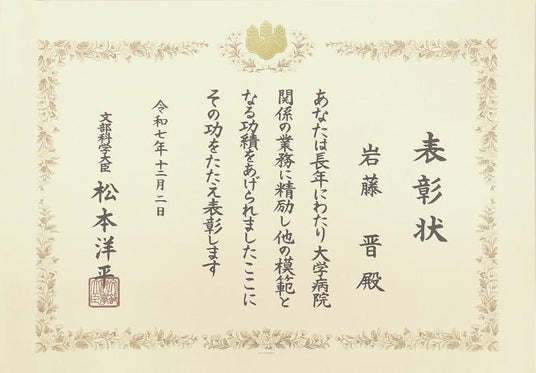 表彰状
岩藤 晋 殿
あなたは長年にわたり大学病院
関係の業務に精励し他の模範と
なる功績をあげられましたここに
その功をたたえ表彰します
令和七年十二月二日
文部科学大臣 松本洋平